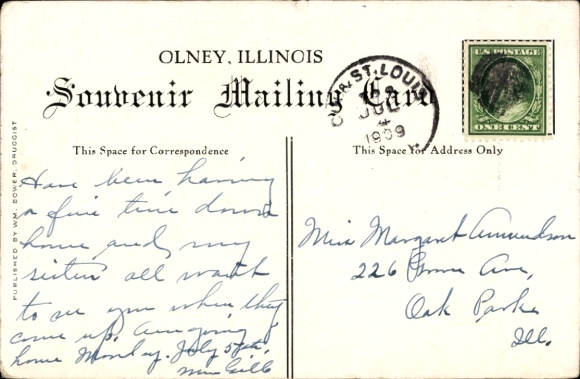 OLNEY, ILLINOIS
Souvenir Mailing Card
ST. LOUIS
JUL
4
1909
U.S. POSTAGE
ONE CENT
This Space for Correspondence
This Space for Address Only
PUBLISHED BY WM. BOWER, DRUGGIST
Have been having
a fine time down
home and my
sisters all want
to see you when they
come up. Am going
home Monday. July 5th.
Miss Margaret Amundson
226 Ave,
Oak Park
Ill.